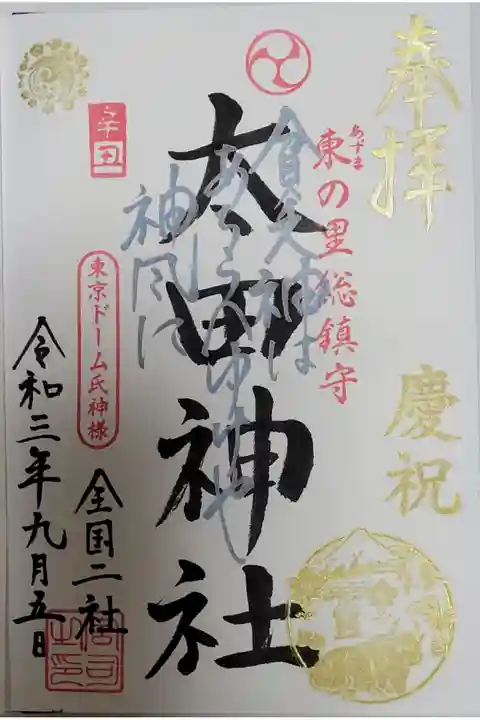 奉拝
慶祝
東の里総鎮守
あずま
太田神社
貧乏神は
神風に
辛丑
東京ドーム氏神様
全国二社
令和三年九月五日